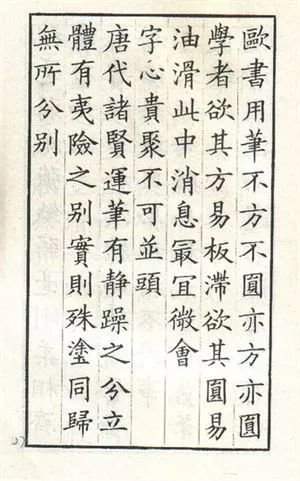 歐書用筆不方不圓亦方亦圓
學者欲其方易板滯欲其圓易
油滑此中消息冣冝微會
字心貴聚不可並頭
唐代諸賢運筆有静躁之分立
體有夷險之别實則殊塗同歸
無所分别